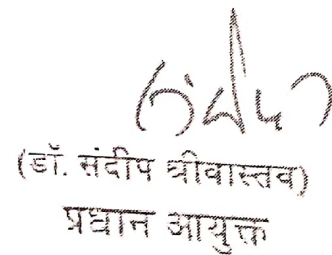 (डॉ. संदीप श्रीवास्तव)
प्रधान आयुक्त